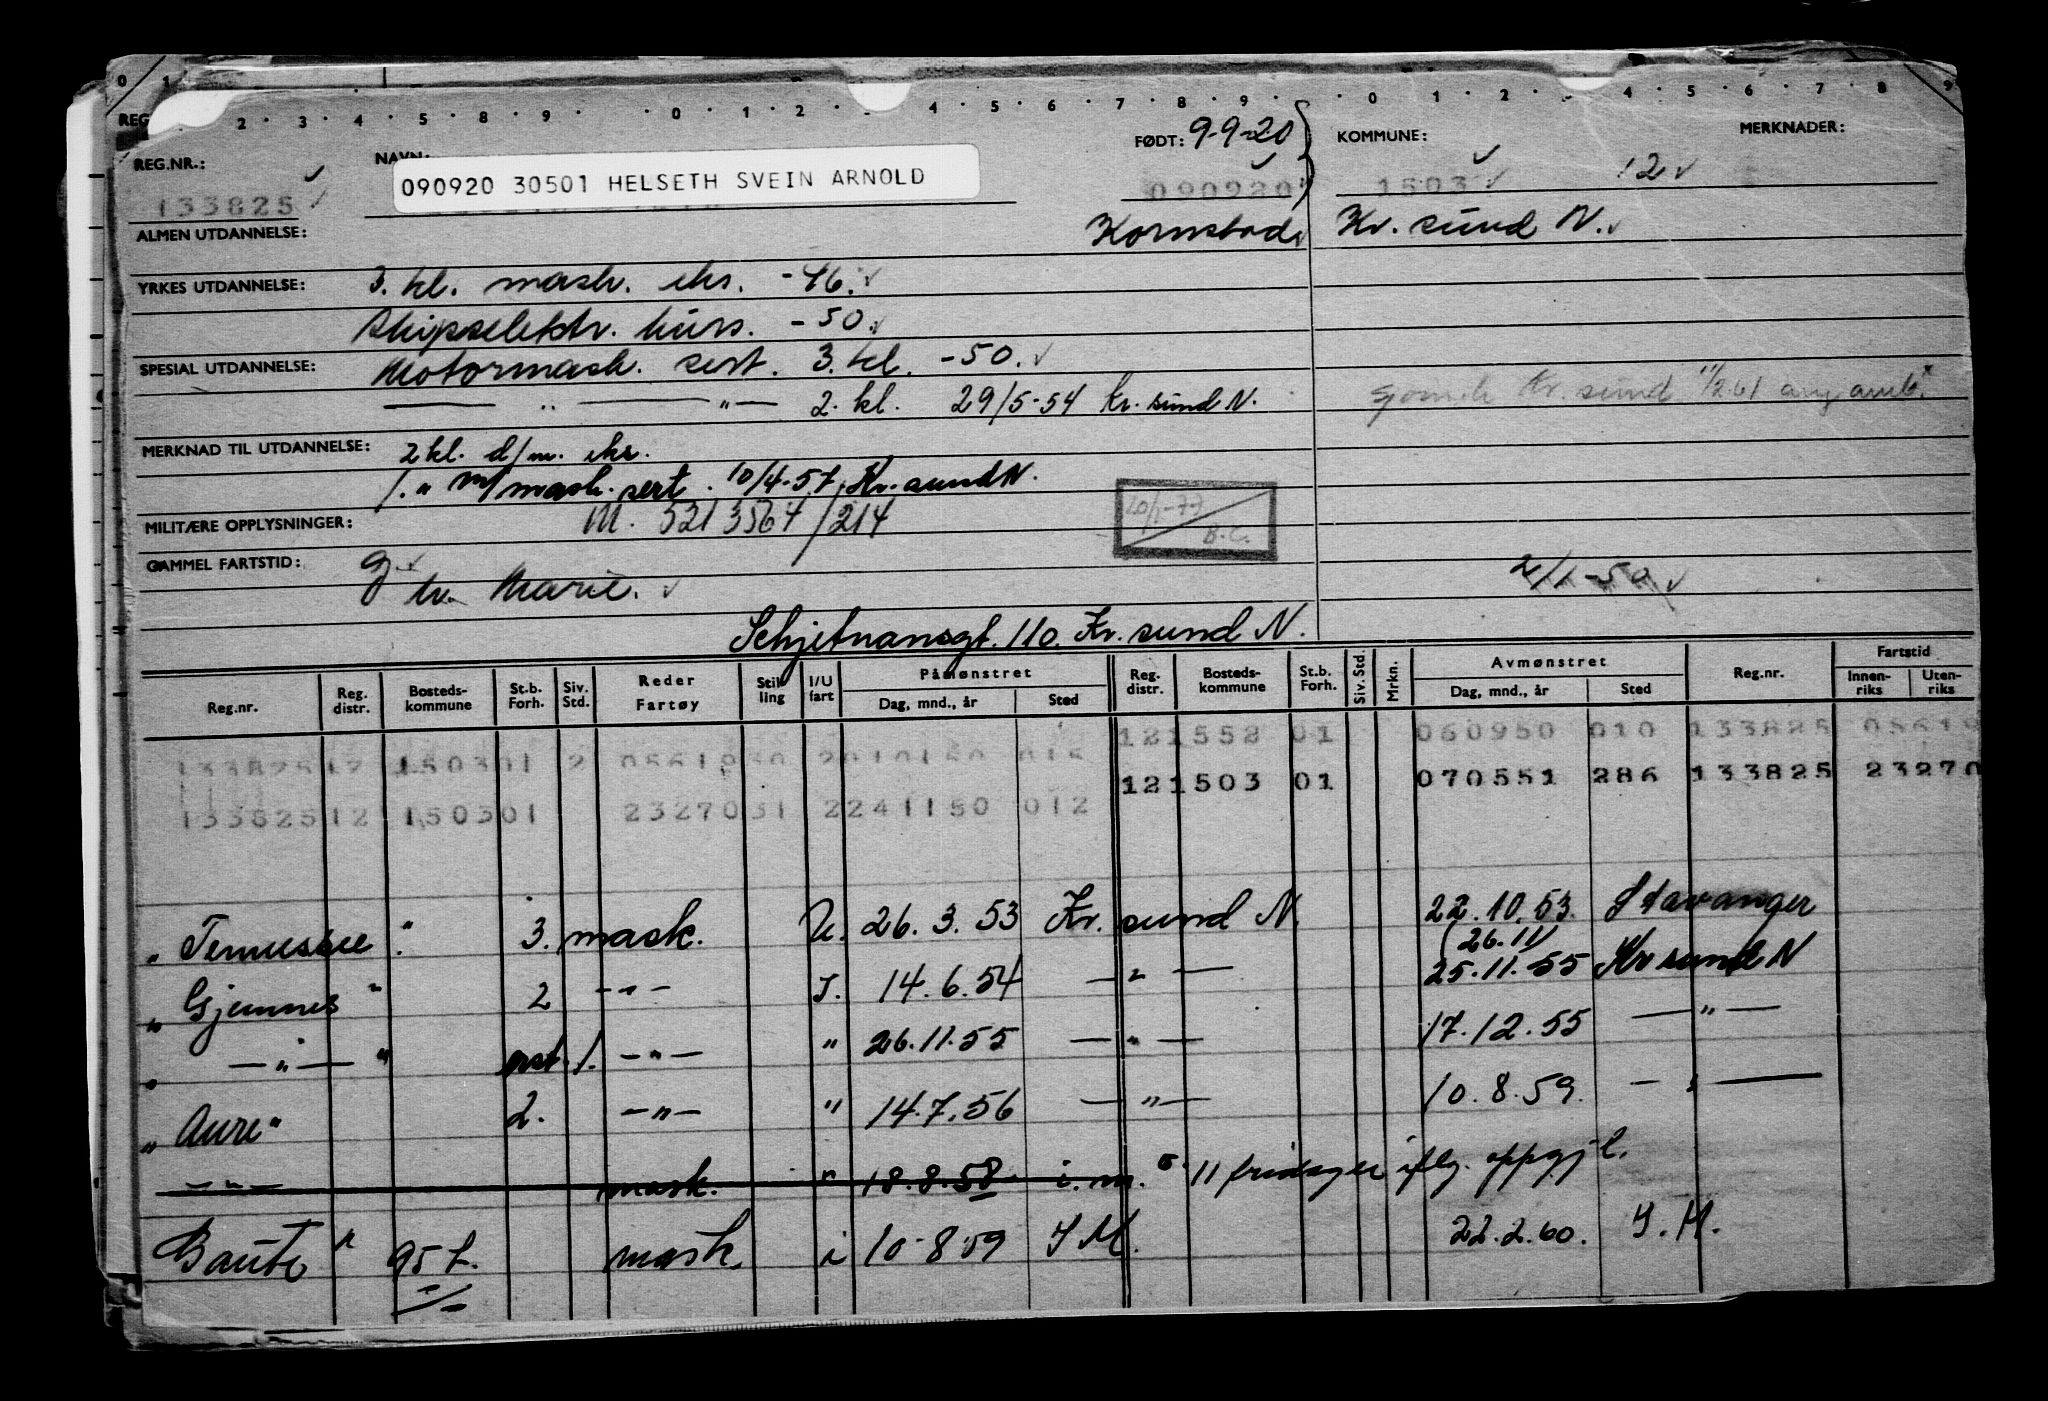 0 1
REG
2 · 3 · 4 · 5 · 8 · 9 · 0 · 1 · 2 · 4 · 5 · 6 · 7 · 8 · 9 · 0 · 1 · 2 · 4 · 5 · 6 · 7 · 8 9
REG.NR.: NAVN: FØDT: 9-9-20 KOMMUNE: MERKNADER:
133825 090920 30501 HELSETH SVEIN ARNOLD 090920 1503 12
ALMEN UTDANNELSE: Kornstad Kr. sund N.
YRKES UTDANNELSE: 3. kl. mask. eks. -46.
Skipselektr. kurs. -50.
SPESIAL UTDANNELSE: Motormask. sert. 3. kl. -50.
— " — " — 2. kl. 29/5-54 Kr. sund N.
Kr. sund
MERKNAD TIL UTDANNELSE: 2 kl. d/m. eks.
1. " m/mask. sert. 10/4-57. Kr. sund N.
MILITÆRE OPPLYSNINGER: M. 5213564/214
20/1-77 B.C.
GAMMEL FARTSTID: g
tr. Marie. 2/1-50
Schjetnansgt. 110. Kr. sund N.
Reg.nr. Reg. distr. Bosteds-kommune St.b. Forh. Siv. Std. Reder Fartøy Stilling I/U fart Påmønstret Dag, mnd., år Sted Reg. distr. Bosteds-kommune St.b. Forh. Siv. Std. Mrkn. Avmønstret Dag, mnd., år Sted Reg.nr. Fartstid Innenriks Utenriks
133825 12 150301 2 0561950 2010150 015 121552 01 060950 010 133825 05619
133825 12 150301 2327031 2241150 012 121503 01 070551 286 133825 23270
" Tennessee " 3. mask. U. 26. 3. 53 Kr. sund N. 22. 10. 53. Stavanger
(26.11)
" Gjemnes " 2 - " - I. 14. 6. 54 — " — 25. 11. 55 Kr sund N
" — " — " ast. 1. — " — " 26. 11. 55 — " — 17. 12. 55 — " —
" Aure " 2. — " — " 14. 7. 56 — " — 10. 8. 59. — " —
— " — mask. " 18. 8. 58 i. m. 11 fridager iflg. oppgj.
Baute " 95 t. mask. i 10-8 59 S M. 22. 2. 60. S. M.